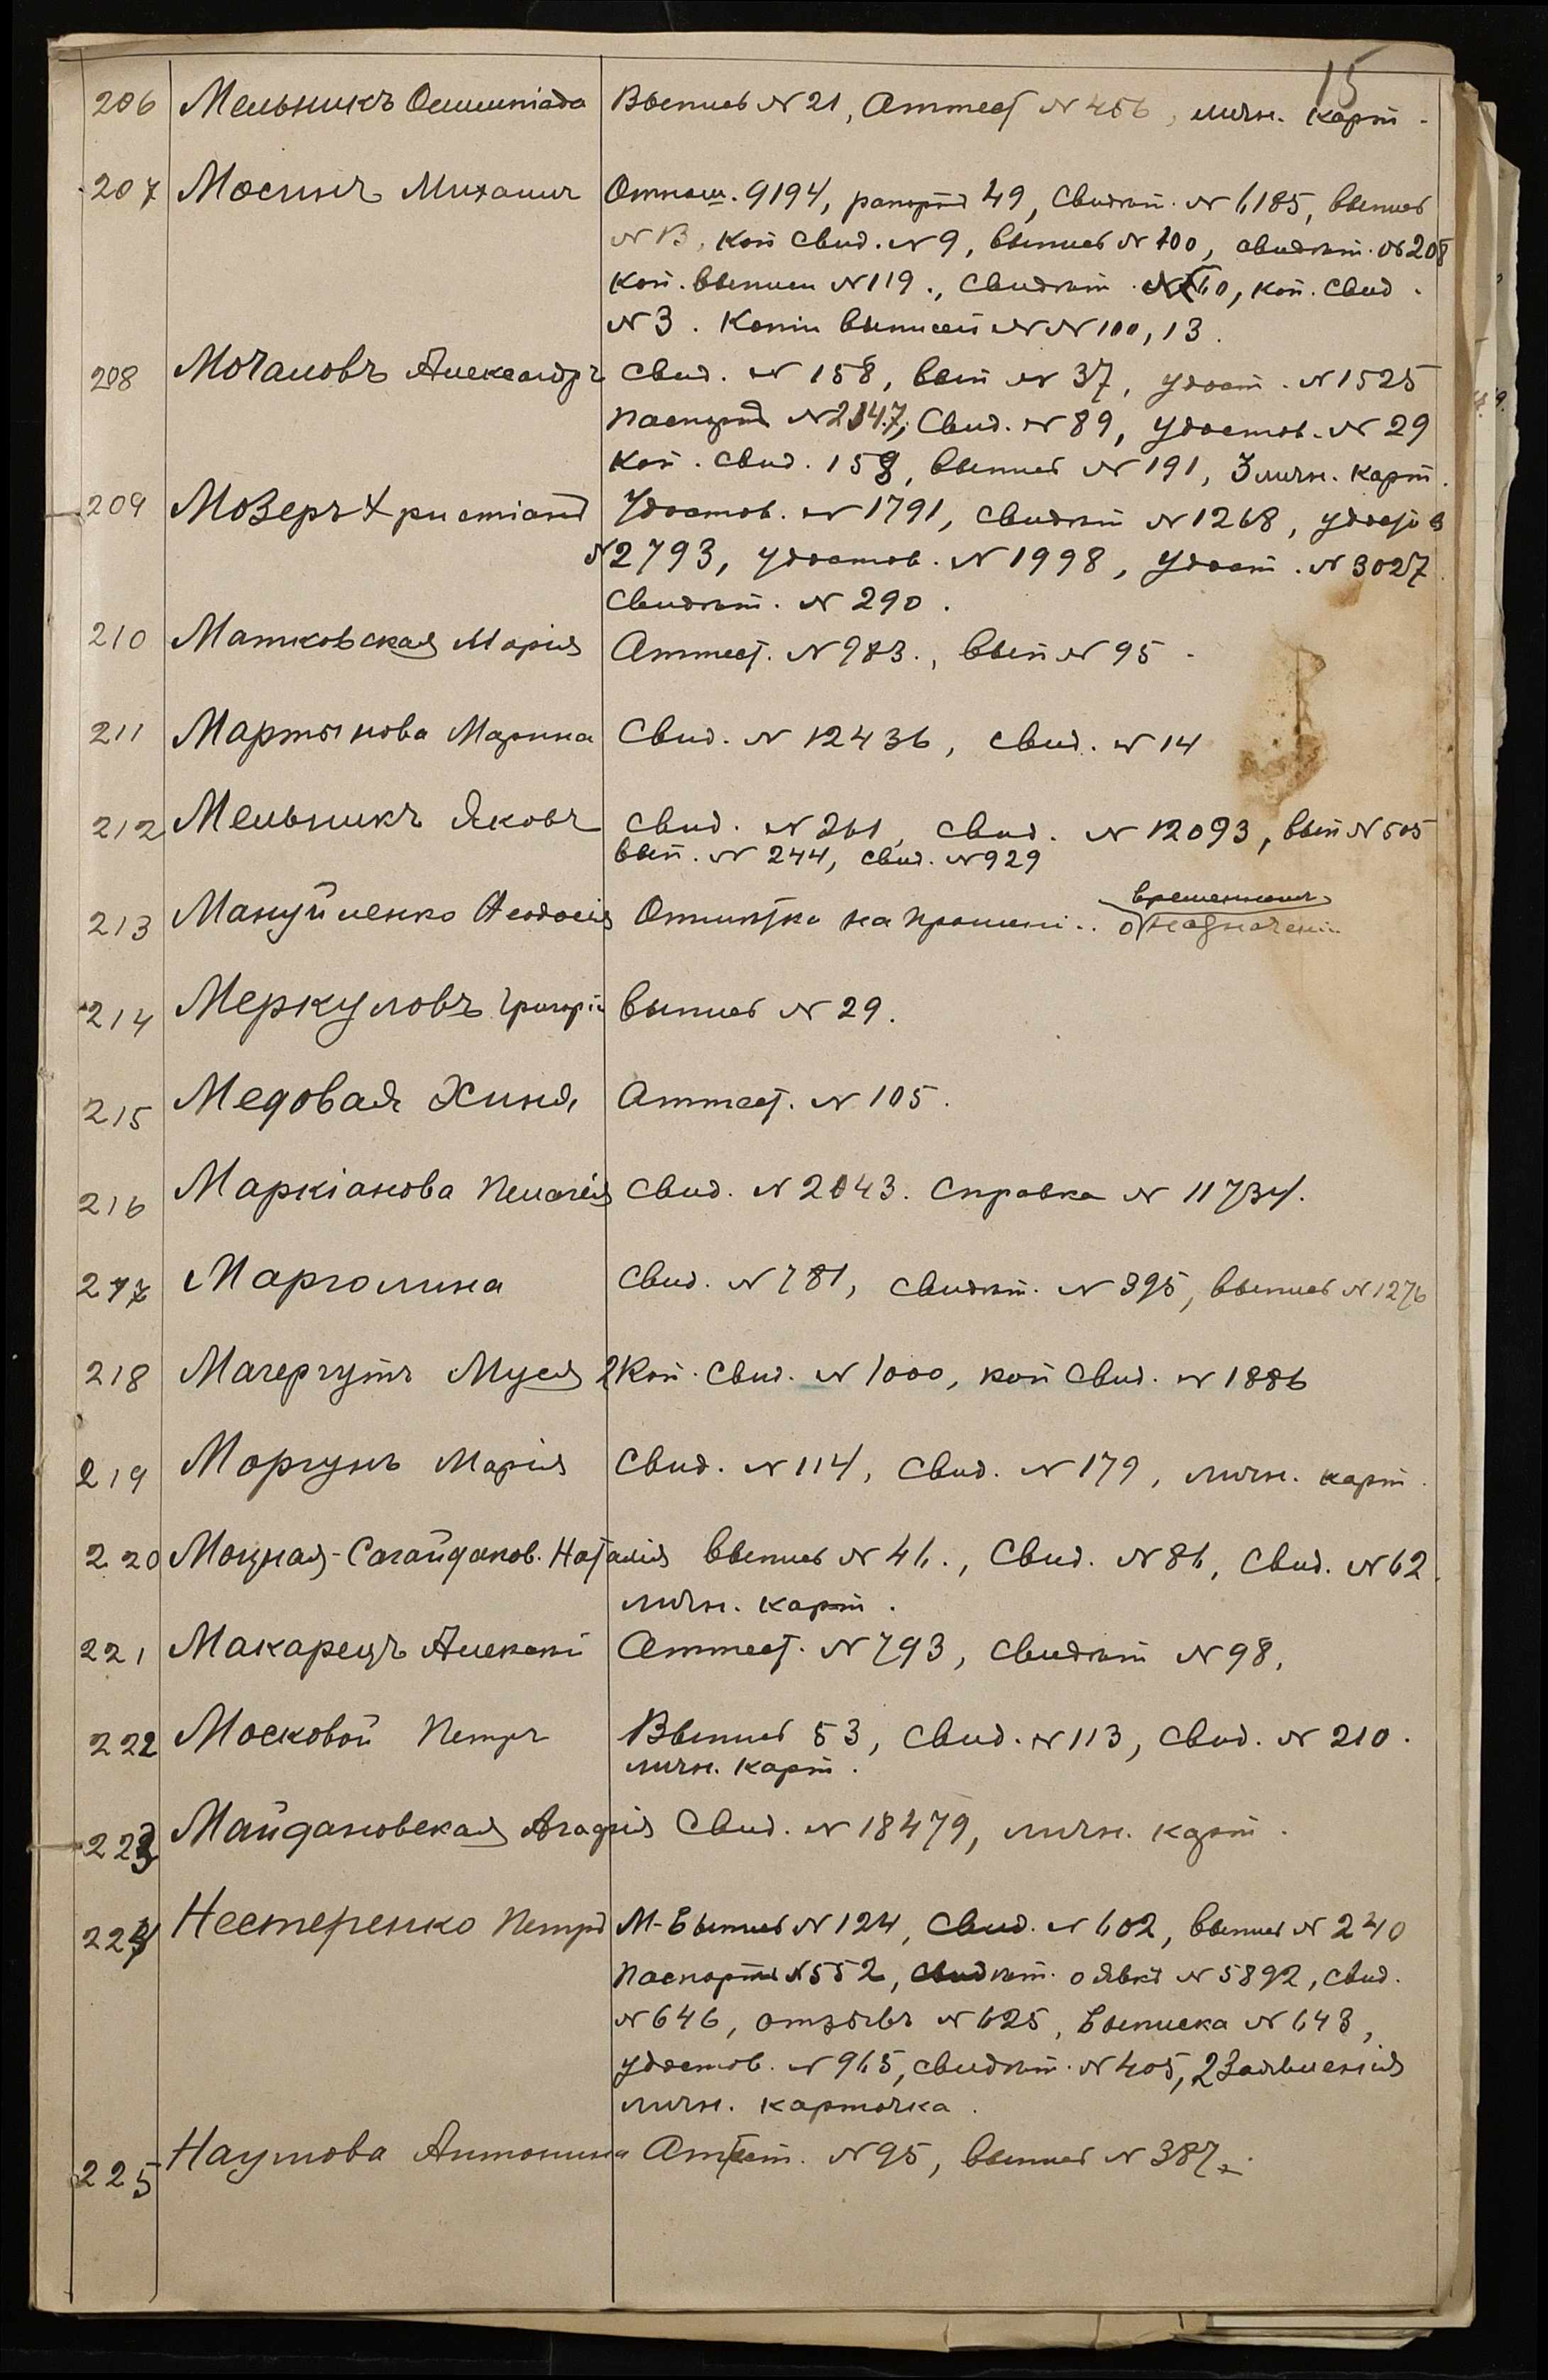 15
206 Мельникъ Олимпіада Выпись № 21, Аттест № 456, личн. карт.
207 Мосинъ Михаилъ Отнош. 9194, рапортъ 49, Свидѣт. № 6185, выпись
№ 13, коп свид. № 9, выпись № 100, свидѣт. № 208
коп. выписи № 119., Свидѣт. № 60, коп. свид.
№ 3. Копіи выписей №№ 100, 13.
208 Мочаловъ Александръ Свид. № 158, вып № 37, удост. № 1525
паспортъ № 2147, Свид. № 89, удостов. № 29
коп. свид. 158, выпись № 191, 3 личн. карт.
209 Мозеръ Христіанъ Удостов. № 1791, свидѣт № 1268, удостов
№ 2793, удостов. № 1998, удост. № 3027.
Свидѣт. № 290.
210 Матковская Марія Аттест. № 983., вып № 95.
211 Мартынова Марина Свид. № 12436, свид. № 14
212 Мельникъ Яковъ Свид. № 261, свид. № 12093, вып № 505
вып. № 244, свид. № 929
213 Мануйленко Ѳеодосія Отмѣтка на прошені.. о временномъ назначеніи
214 Меркуловъ Григорій Выпись № 29.
215 Медовая Хиня Аттест. № 105.
216 Маркіанова Пелагея Свид. № 2043. Справка № 11734.
217 Марголина Свид. № 781, свидѣт. № 395, выпись № 1276
218 Мачергутъ Муся 2 Коп. Свид. № 1000, коп Свид. № 1886
219 Моргунъ Марія Свид. № 114, Свид. № 179, личн. карт.
220 Моцная-Сагайдаков. Наталія Выпись № 41., Свид. № 86, Свид. № 62.
личн. карт.
221 Макарецъ Алексѣй Аттест. № 793, Свидѣт № 98,
222 Московой Петръ Выпись 53, Свид. № 113, Свид. № 210.
личн. карт.
223 Майдановская Агафія Свид. № 18479, личн. карт.
224 Нестеренко Петръ М-Выпись № 124, Свид. № 602, выпись № 240
Паспортъ № 552, Свидѣт. о явкѣ № 5892, свид.
№ 646, отзывъ № 625, Выписка № 643,
удостов. № 965, свидѣт. № 405, 2 Заявленія
личн. карточка.
225 Наумова Антонина Аттест. № 95, выпись № 387.